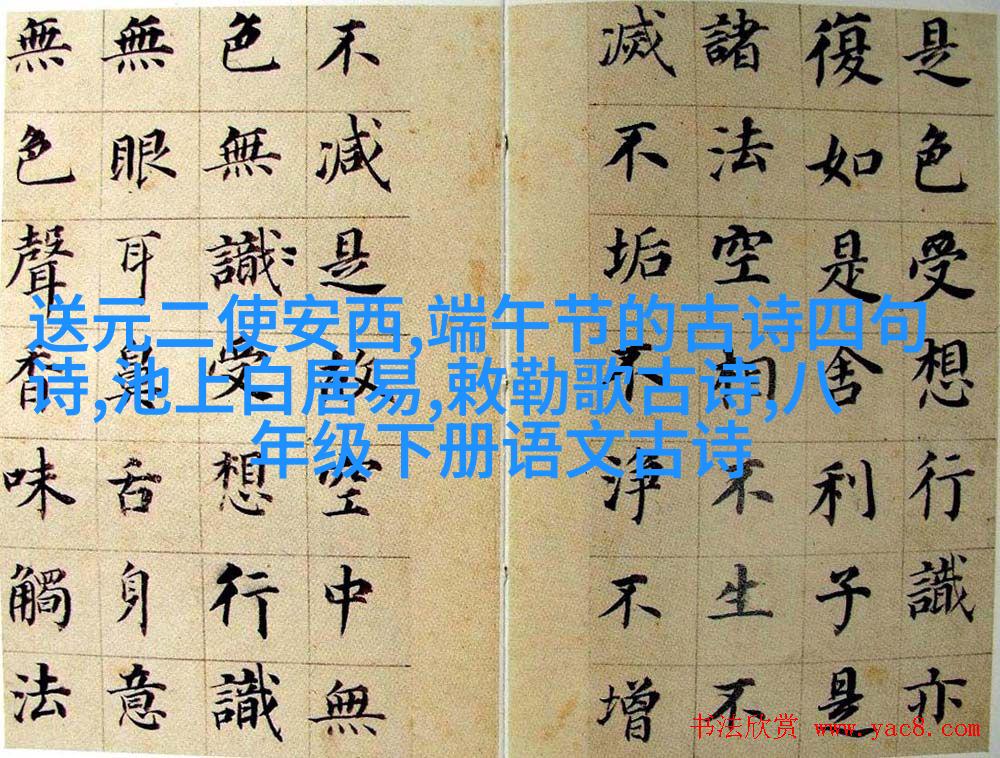 是色受想行識亦
復如是舍利子是
諸法空相不生不
滅不垢不淨不增
不減是故空中無
色無識受想行識
無眼耳鼻舌身意
無色聲香味觸法
送元二使安西,端午节的古诗四句
诗,池上白居易,敕勒歌古诗,八
年级下册语文古诗
书法欣赏 www.yac8.com